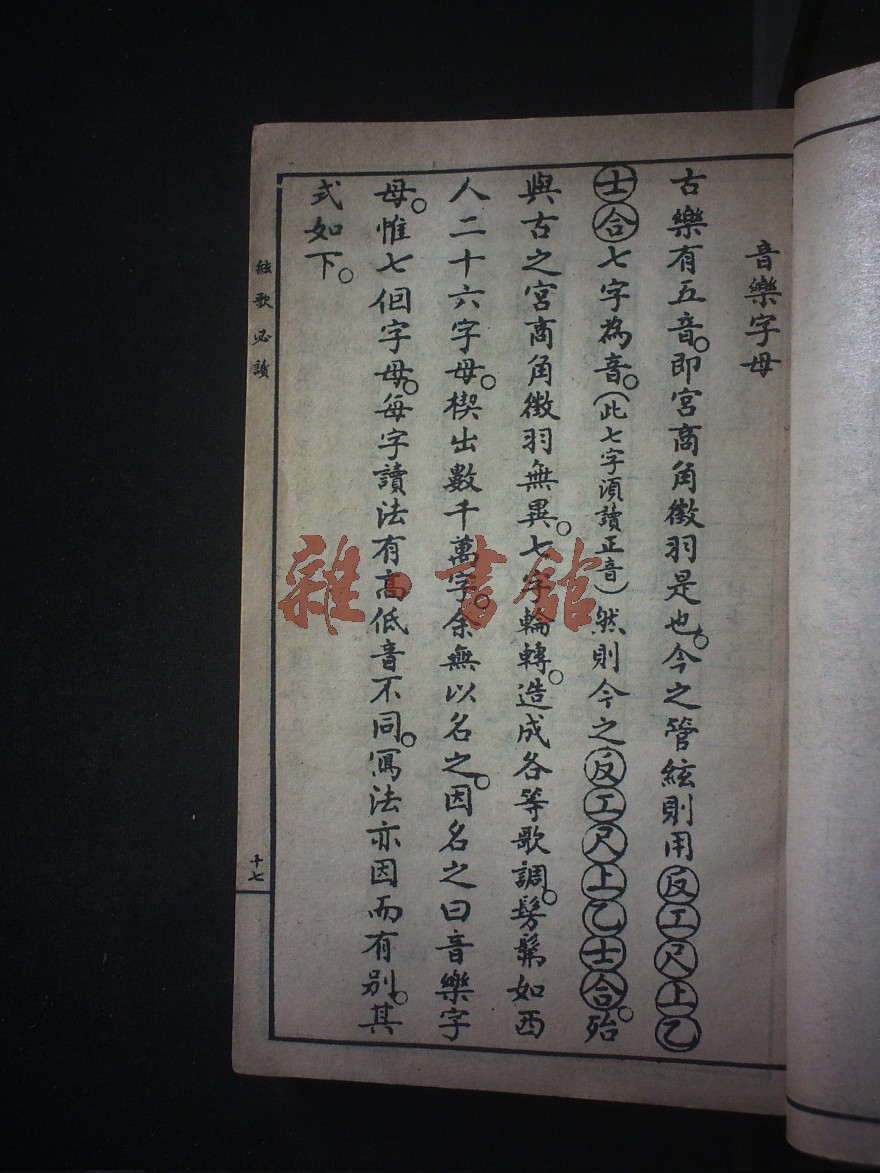 音樂字母
古樂有五音。即宮商角徵羽是也。今之管絃則用反工尺上乙
士合七字為音。(此七字須讀正音)然則今之反工尺上乙士合。殆
與古之宮商角徵羽無異。七字輪轉。造成各等歌調。髣髴如西
人二十六字母。楔出數千萬字。余無以名之。因名之曰音樂字
母。惟七個字母。每字讀法有高低音不同。寫法亦因而有別。其
式如下。
絃歌必讀
十七
雜·書館